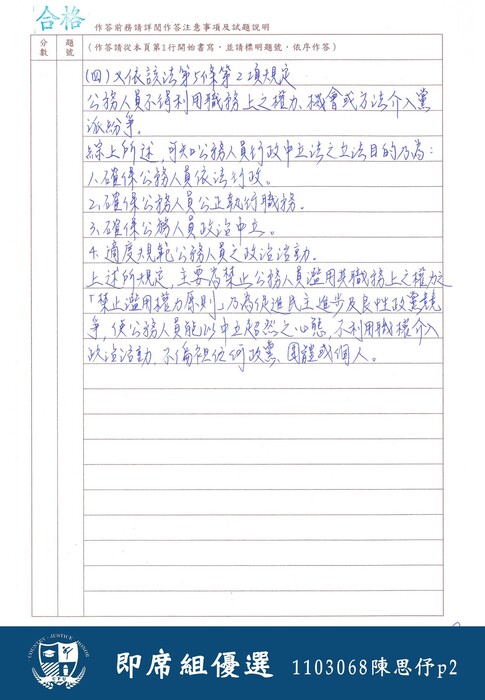 合格
作答前務請詳閱作答注意事項及試題說明
分數
題號
(作答請從本頁第1行開始書寫,並請標明題號,依序作答)
(四)又依該法第5條第2項規定
公務人員不得利用職務上之權力、機會或方法介入黨
派紛爭。
綜上所述,可知公務人員行政中立法之立法目的乃為:
1.確保公務人員依法行政。
2.確保公務人員公正執行職務。
3.確保公務人員政治中立。
4.適度規範公務人員之政治活動。
上述所規定,主要為禁止公務人員濫用其職務上之權力之
「禁止濫用權力原則」乃為促進民主進步及良性政黨競
爭,使公務人員能以中立超然之心態,不利用職權介入
政治活動,不偏袒任何政黨、團體或個人。
COUNTRY JUSTICE HONOR
即席組優選 1103068陳思伃p2